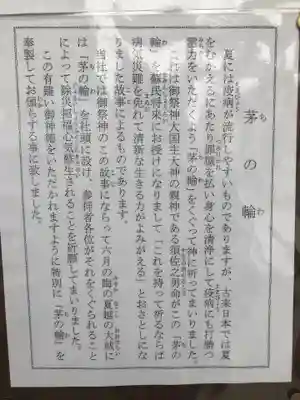 茅の輪
夏には疫病が流行しやすいものでありますが、古来日本では夏
をむかえるにあたり罪穢を払い身心を清浄にして疫病にも打勝つ
霊力をいただくよう「茅の輪」をくぐって神に祈ってまいりました。
これは御祭神大国主大神の親神である須佐之男命がこの「茅の
輪」を蘇民将来にお授けになりまして「これを持って祈るならば
病気災難を免れて清新な生きる力がよみがえる」とおさとしにな
りました故事によるものであります。
当社では御祭神のこの故事にならって六月の晦の夏越の大祓に
は「茅の輪」を社頭に設け、参拝者各位がそれをくぐられること
によって除災招福心気蘇生されることを祈願してまいりました。
この有難い御神徳をいただかれますように特別に「茅の輪」を
奉製してお頒ちする事に致しました。